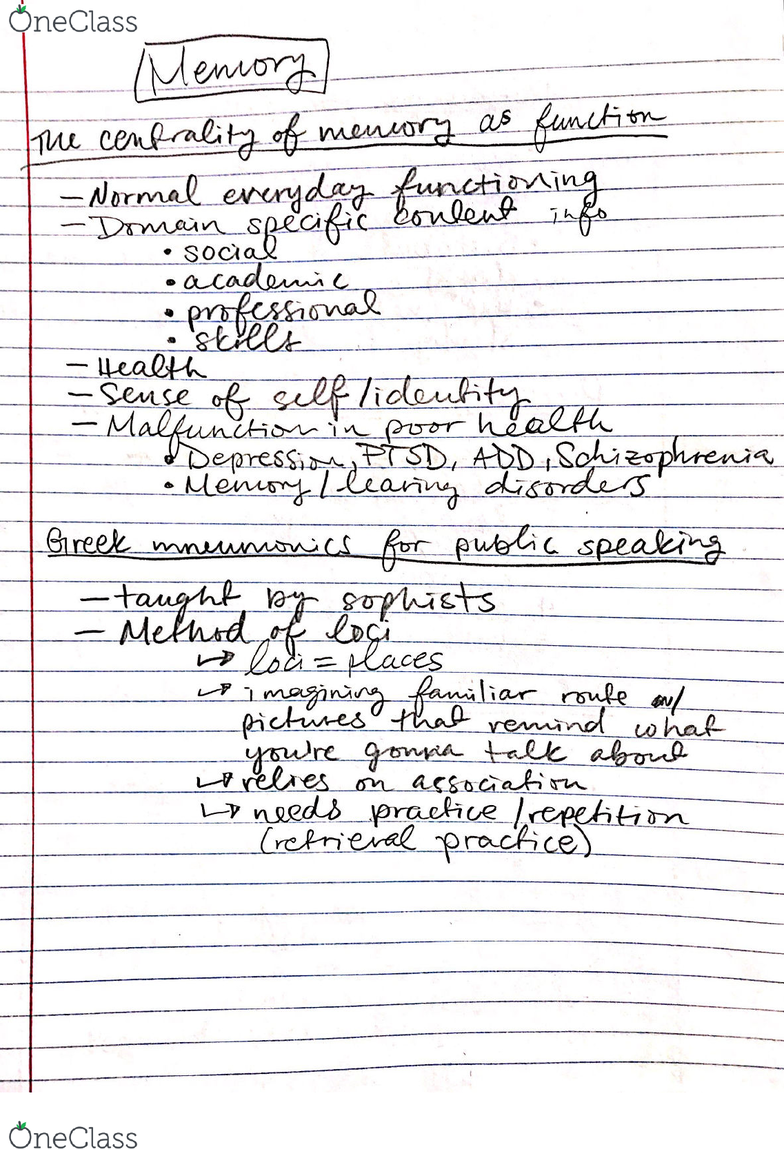 OneClass
Memory
The centrality of memory as function
- Normal everyday functioning
- Domain specific content info
• social
• academic
• professional
• skills
- Health
- Sense of self/identity
- Malfunction in poor health
• Depression, PTSD, ADD, Schizophrenia
• Memory/learing disorders
Greek mneumonics for public speaking
- taught by sophists
- Method of loci
↳ loci = places
↳ imagining familiar route w/
pictures that remind what
you're gonna talk about
↳ relies on association
↳ needs practice/repetition
(retrieval practice)
OneClass